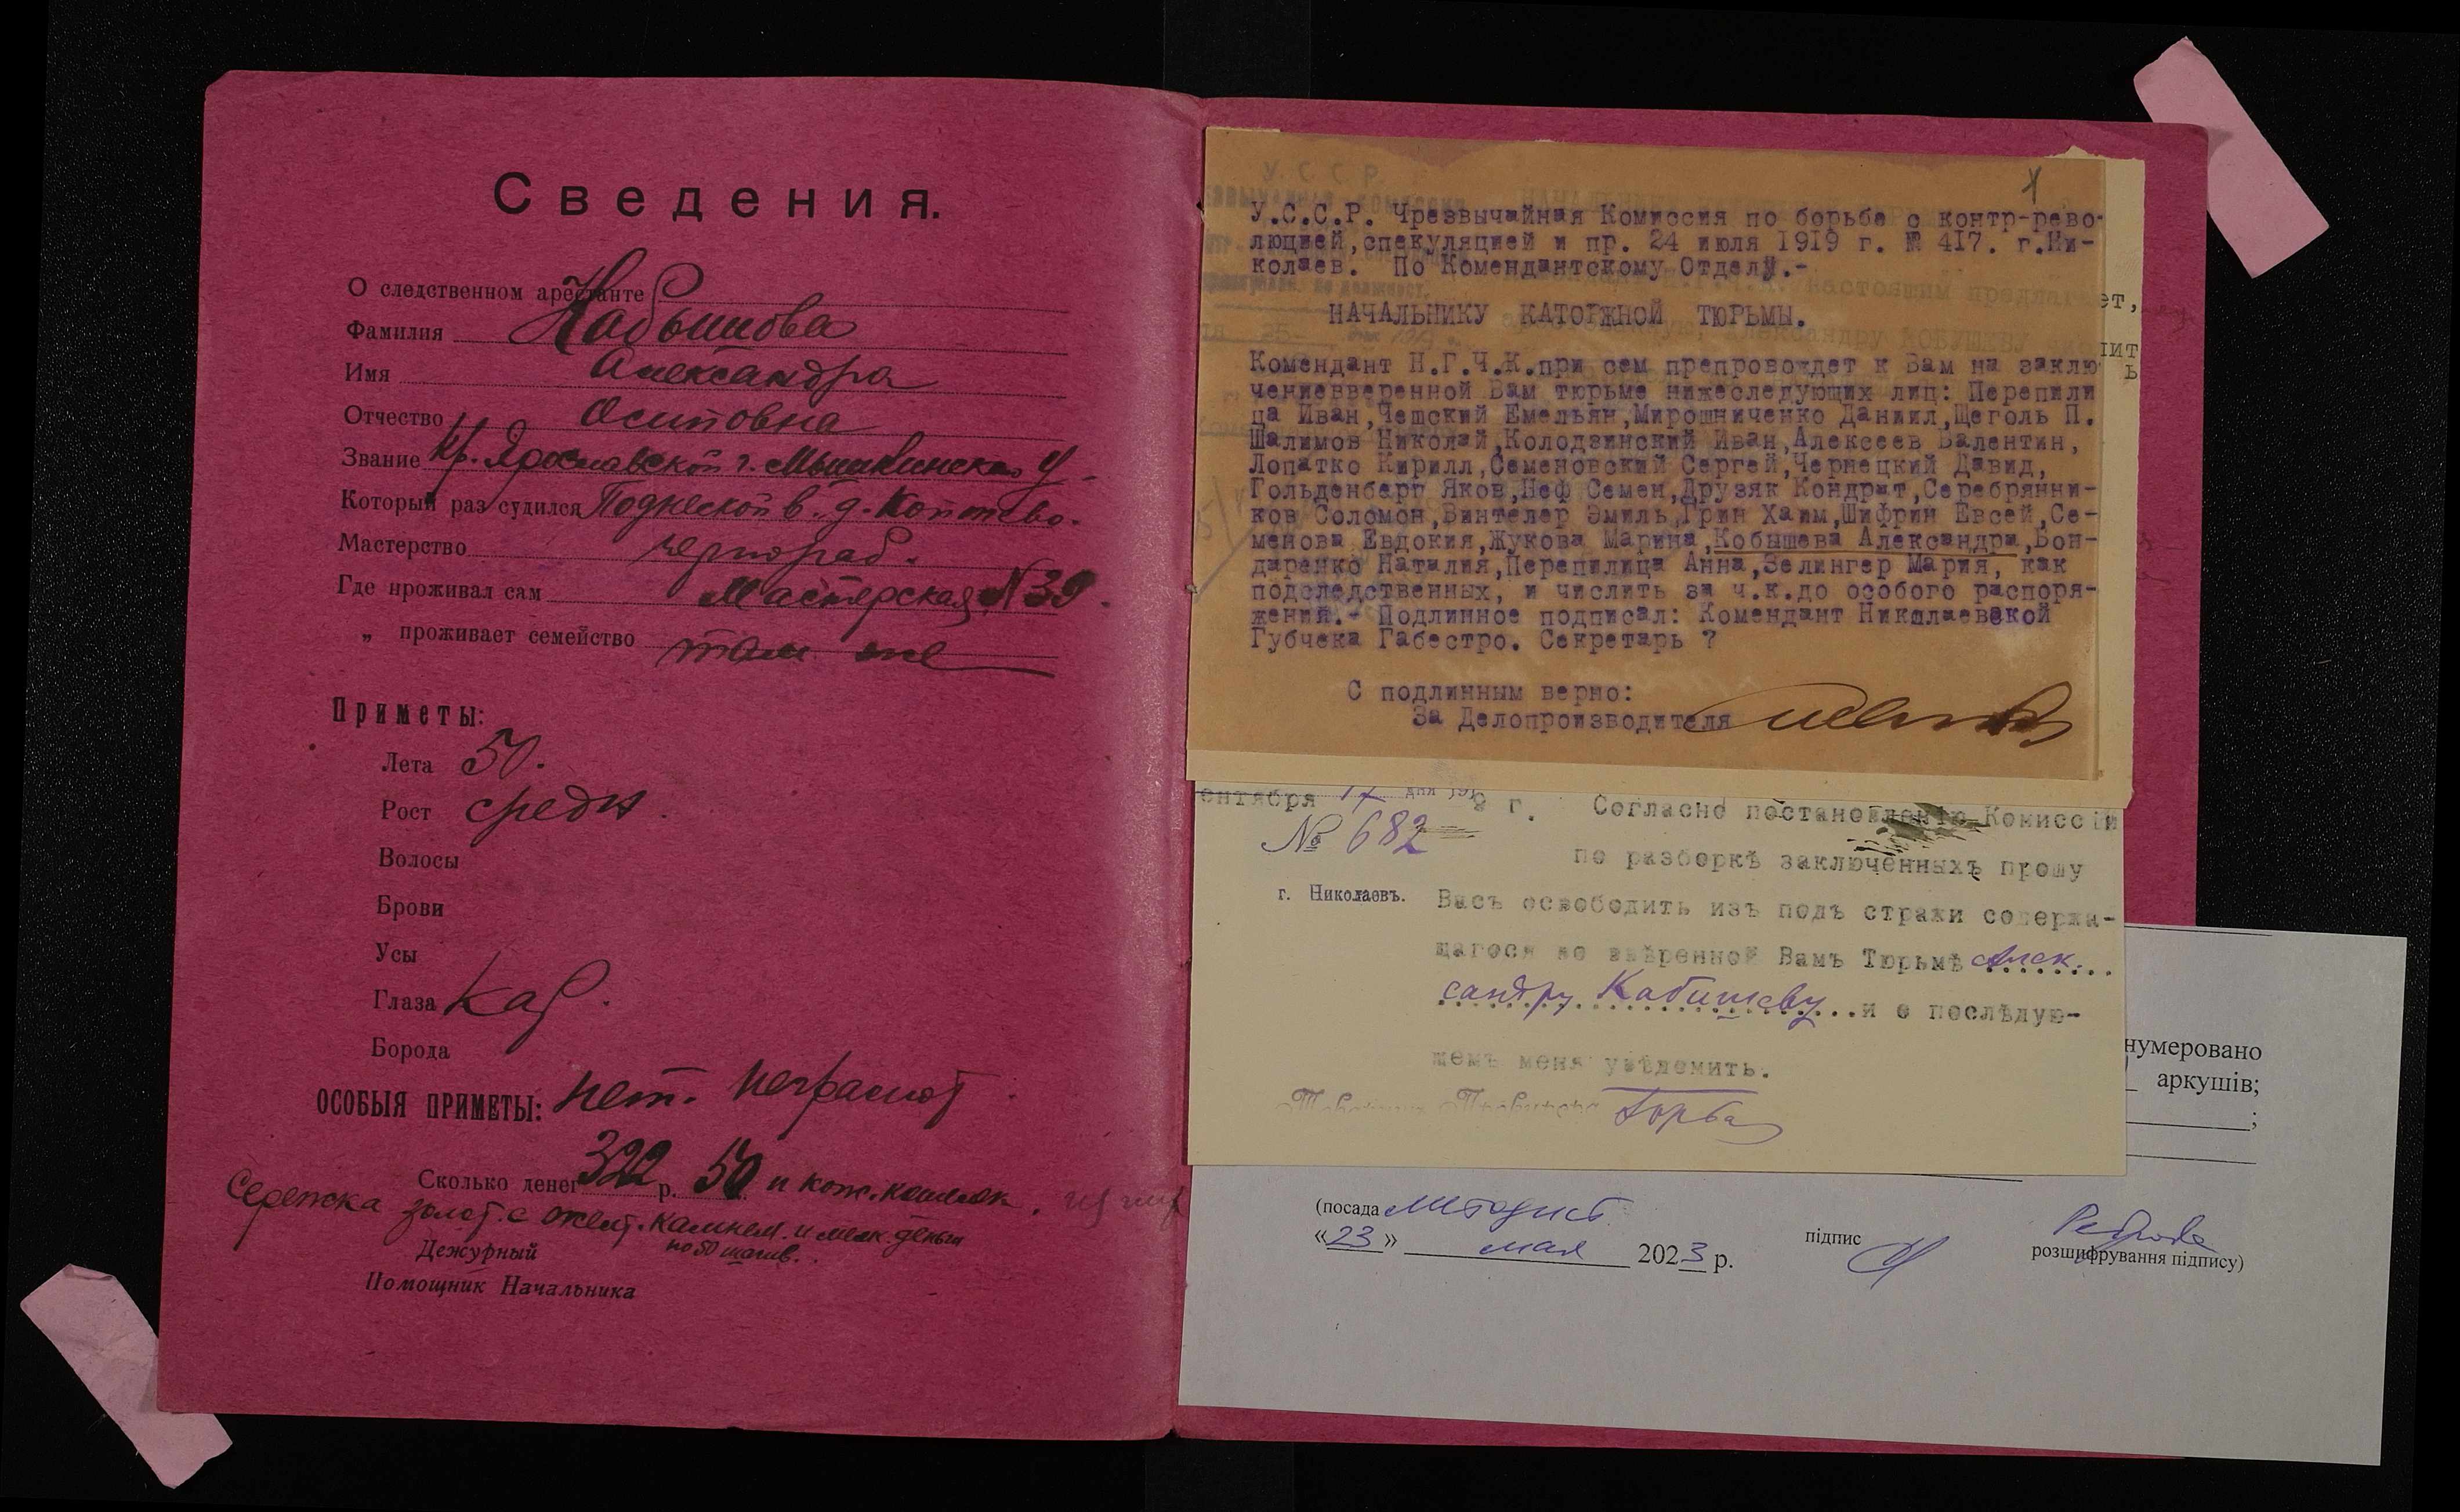 Сведения.
О следственном арестанте
Фамилия Кобышева
Имя Александра
Отчество Осиповна
Звание кр. Ярославской г. Мышкинского у.
Который раз судился в. д.
Мастерство чернораб.
Где проживал сам Мастерская №39.
„ проживает семейство там же
Приметы:
Лета 50.
Рост средн.
Волосы
Брови
Усы
Глаза кар.
Борода
ОСОБЫЯ ПРИМЕТЫ: нет. неграмот
Сколько денег 322 р. 50 и кож. кошелек.
Сережка золот. с желт. камнем. и мелк. деньги
по 50 шагив.
Дежурный
Помощник Начальника
У.С.С.Р. Чрезвычайная Комиссия по борьбе с контр-рево-
люцией,спекуляцией и пр. 24 июля 1919 г. № 417. г.Ни-
колаев. По Комендантскому Отделу.-
НАЧАЛЬНИКУ КАТОРЖНОЙ ТЮРЬМЫ.
Комендант Н.Г.Ч.К.при сем препровождет к Вам на заклю
чениевверенной Вам тюрьме нижеследующих лиц: Перепили
ца Иван,Чешский Емельян,Мирошниченко Даниил,Щеголь П.
Шалимов Николай,Колодзинский Иван,Алексеев Валентин,
Лопатко Кирилл,Семеновский Сергей,Чернецкий Давид,
Гольденберг Яков,Неф Семен,Друзяк Кондрат,Серебрянни-
ков Соломон,Винтелер Эмиль,Грин Хаим,Шифрин Евсей,Се-
менова Евдокия,Жукова Марина,Кобышева Александра,Бон-
даренко Наталия,Перепилица Анна,Зелингер Мария, как
подследственных, и числить за ч.к.до особого распоря-
жения.- Подлинное подписал: Комендант Николаевской
Губчека Габестро. Секретарь ?
С подлинным верно:
За Делопроизводителя
ет,
ит
ь
ентября 17 дня 1919 г. Согласно постановленію Комиссіи
№ 682
по разборкѣ заключенныхъ прошу
г. Николаевъ. Васъ освободить изъ подъ стражи содержа-
щагося во ввѣренной Вамъ Тюрьмѣ Алек
сандру Кабишеву и о послѣдую-
щемъ меня увѣдомить.
нумеровано
аркушів;
;
(посада методист
«23» мая 2023 р.
підпис
розшифрування підпису)